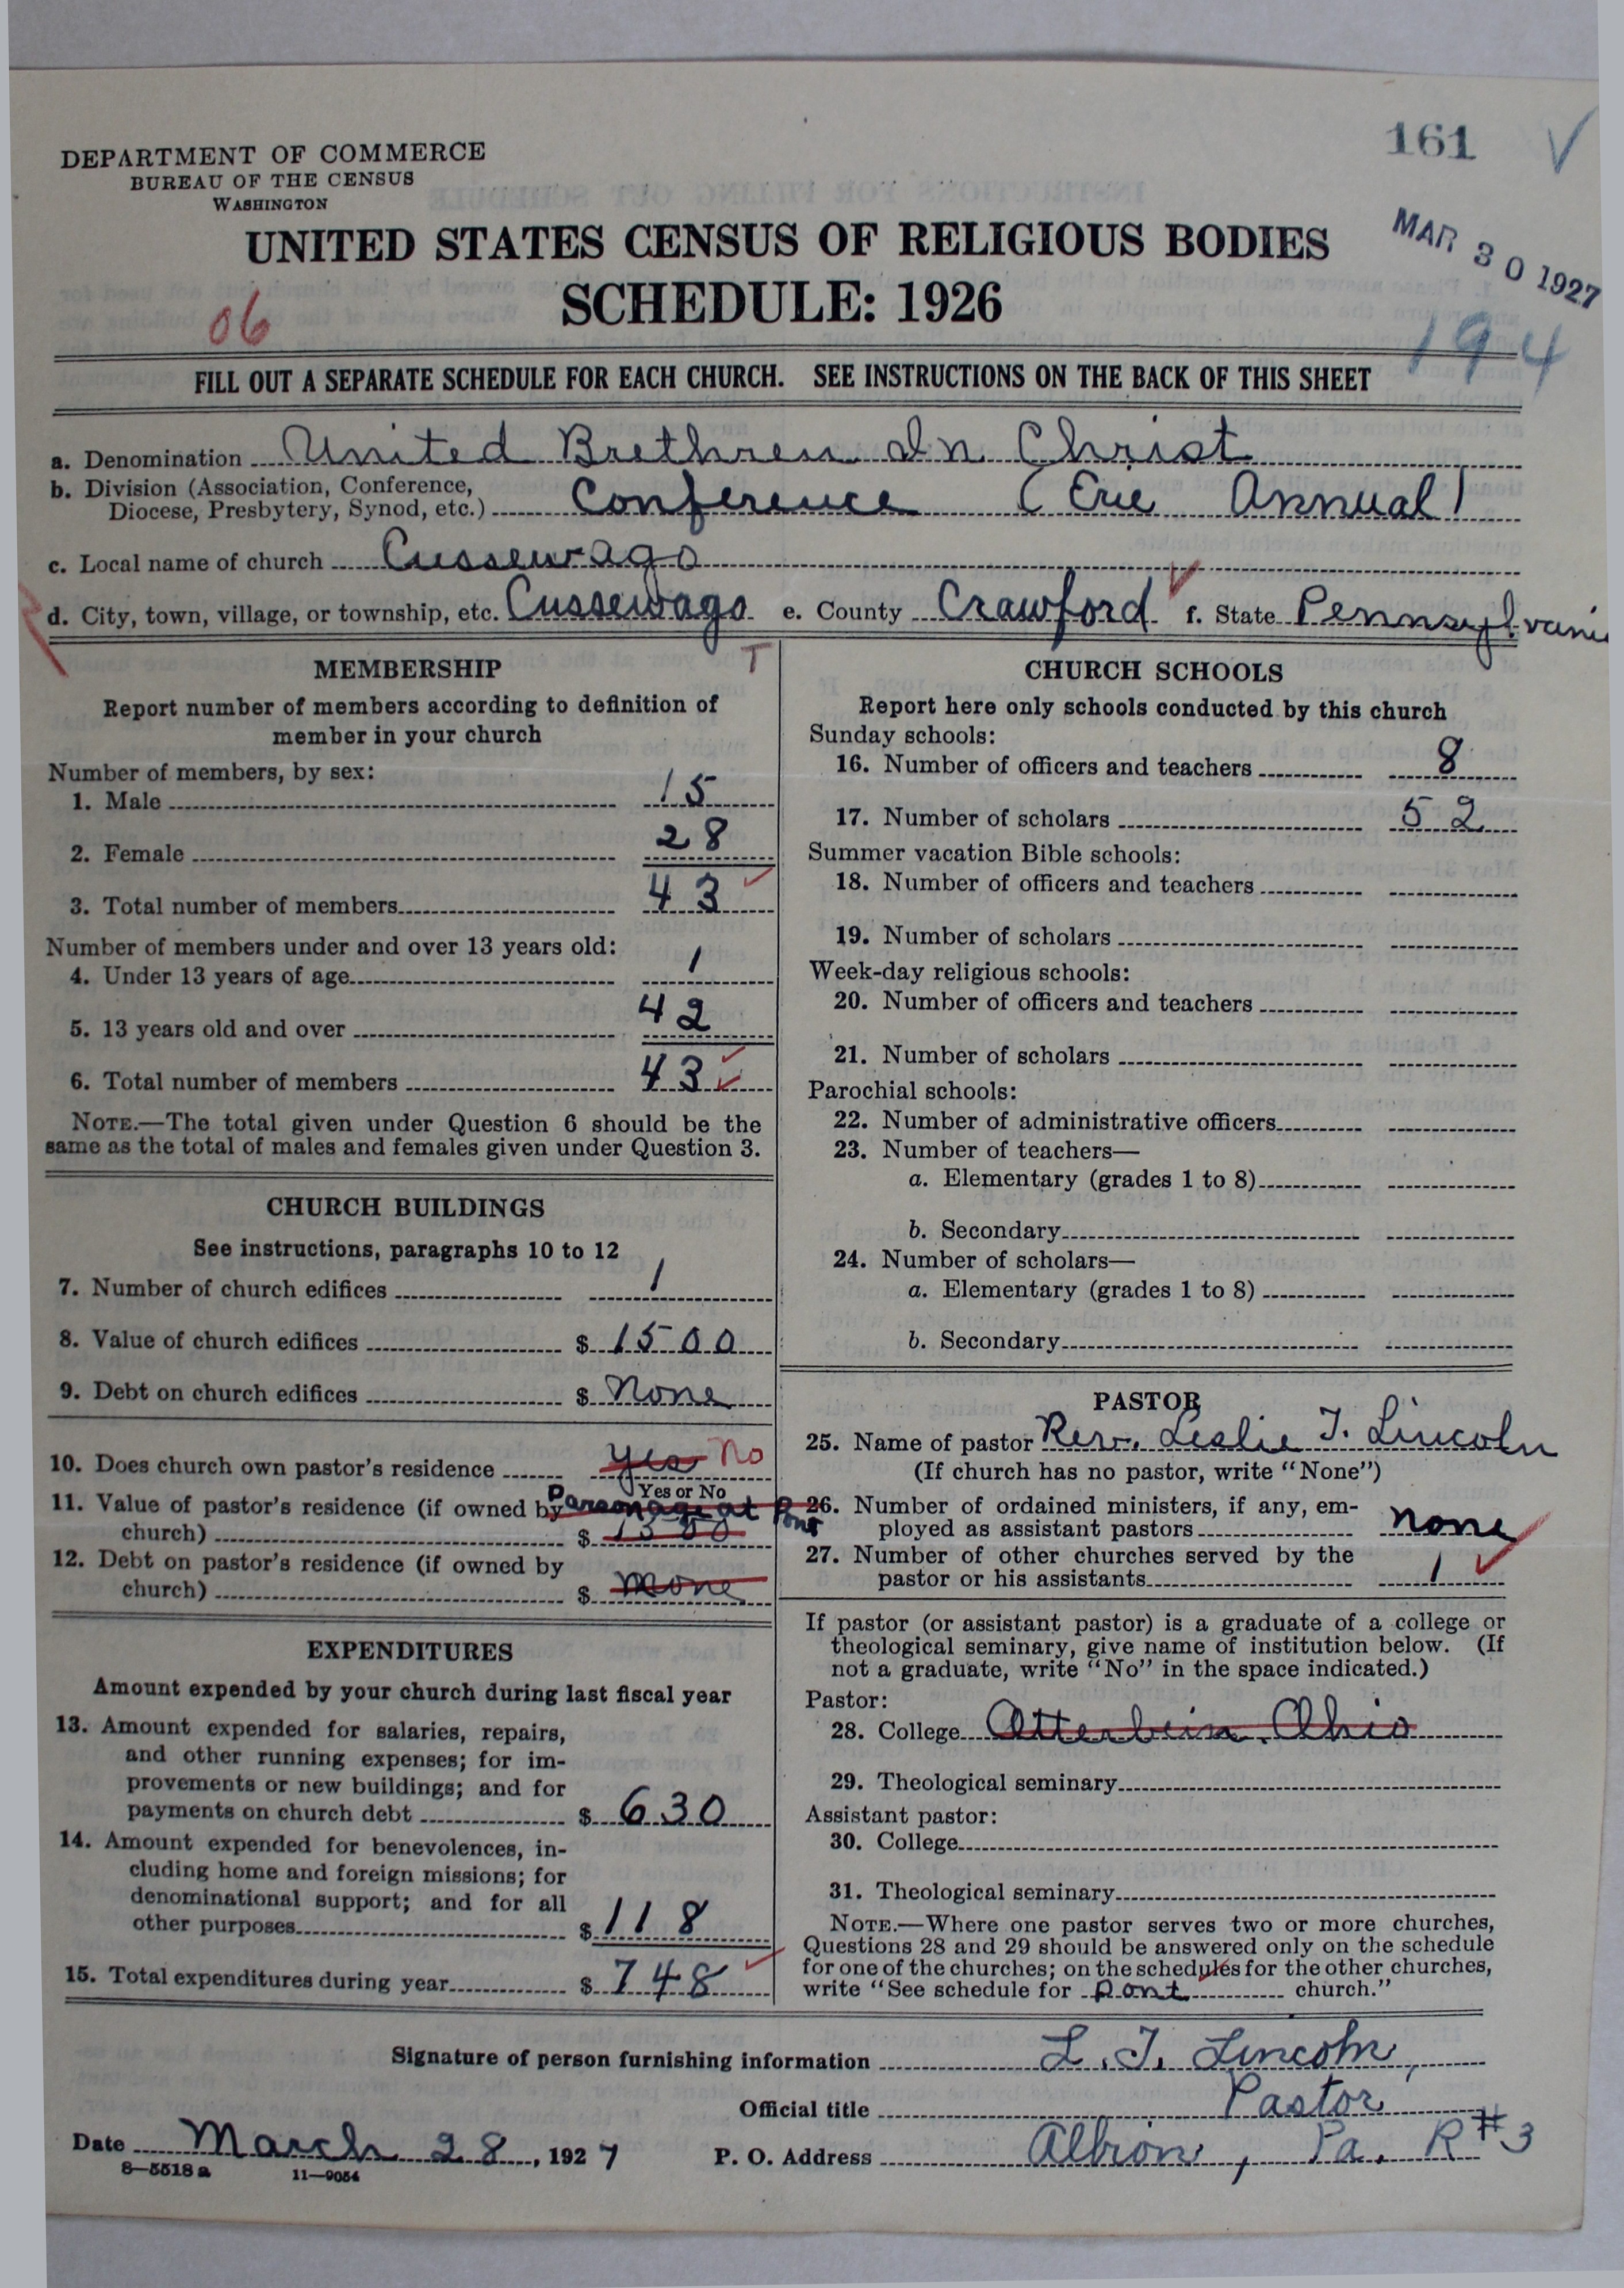 161
DEPARTMENT OF COMMERCE
BUREAU OF THE CENSUS
WASHINGTON
UNITED STATES CENSUS OF RELIGIOUS BODIES
MAR 30 1927
SCHEDULE: 1926
06
194
FILL OUT A SEPARATE SCHEDULE FOR EACH CHURCH. SEE INSTRUCTIONS ON THE BACK OF THIS SHEET
a. Denomination United Brethren In Christ
b. Division (Association, Conference,
Diocese, Presbytery, Synod, etc.) Conference (Erie Annual)
c. Local name of church Cussewago
d. City, town, village, or township, etc. Cussewago e. County Crawford f. State Pennsylvania
MEMBERSHIP T
Report number of members according to definition of
member in your church
Number of members, by sex:
1. Male 15
2. Female 28
3. Total number of members 43
Number of members under and over 13 years old:
4. Under 13 years of age 1
5. 13 years old and over 42
6. Total number of members 43
NOTE.—The total given under Question 6 should be the
same as the total of males and females given under Question 3.
CHURCH BUILDINGS
See instructions, paragraphs 10 to 12
7. Number of church edifices 1
8. Value of church edifices $ 1500
9. Debt on church edifices $ None
10. Does church own pastor's residence yes No
Yes or No
11. Value of pastor's residence (if owned by Parsonage at Pont
church) $ 1500
12. Debt on pastor's residence (if owned by
church) $ None
EXPENDITURES
Amount expended by your church during last fiscal year
13. Amount expended for salaries, repairs,
and other running expenses; for im-
provements or new buildings; and for
payments on church debt $ 630
14. Amount expended for benevolences, in-
cluding home and foreign missions; for
denominational support; and for all
other purposes $ 118
15. Total expenditures during year $ 748
CHURCH SCHOOLS
Report here only schools conducted by this church
Sunday schools:
16. Number of officers and teachers 8
17. Number of scholars 52
Summer vacation Bible schools:
18. Number of officers and teachers
19. Number of scholars
Week-day religious schools:
20. Number of officers and teachers
21. Number of scholars
Parochial schools:
22. Number of administrative officers
23. Number of teachers—
a. Elementary (grades 1 to 8)
b. Secondary
24. Number of scholars—
a. Elementary (grades 1 to 8)
b. Secondary
PASTOR
25. Name of pastor Rev. Leslie T. Lincoln
(If church has no pastor, write "None")
26. Number of ordained ministers, if any, em-
ployed as assistant pastors None
27. Number of other churches served by the
pastor or his assistants 1
If pastor (or assistant pastor) is a graduate of a college or
theological seminary, give name of institution below. (If
not a graduate, write "No" in the space indicated.)
Pastor:
28. College Otterbein. Ohio
29. Theological seminary
Assistant pastor:
30. College
31. Theological seminary
NOTE.—Where one pastor serves two or more churches,
Questions 28 and 29 should be answered only on the schedule
for one of the churches; on the schedules for the other churches,
write "See schedule for Pont church."
Signature of person furnishing information L. T. Lincoln,
Official title Pastor
Date March 28, 1927 P. O. Address Albion, Pa. R#3
8—5518 a 11—9054